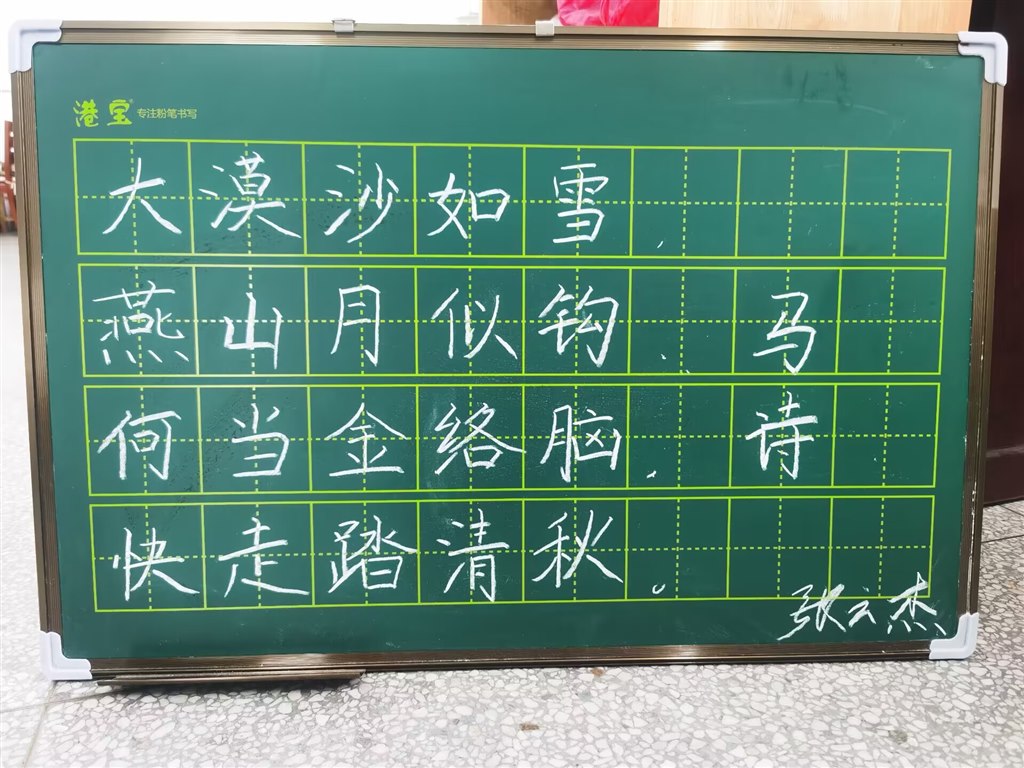 港宝 专注粉笔书写
大漠沙如雪,
燕山月似钩、 马
何当金络脑, 诗
快走踏清秋。
张云杰